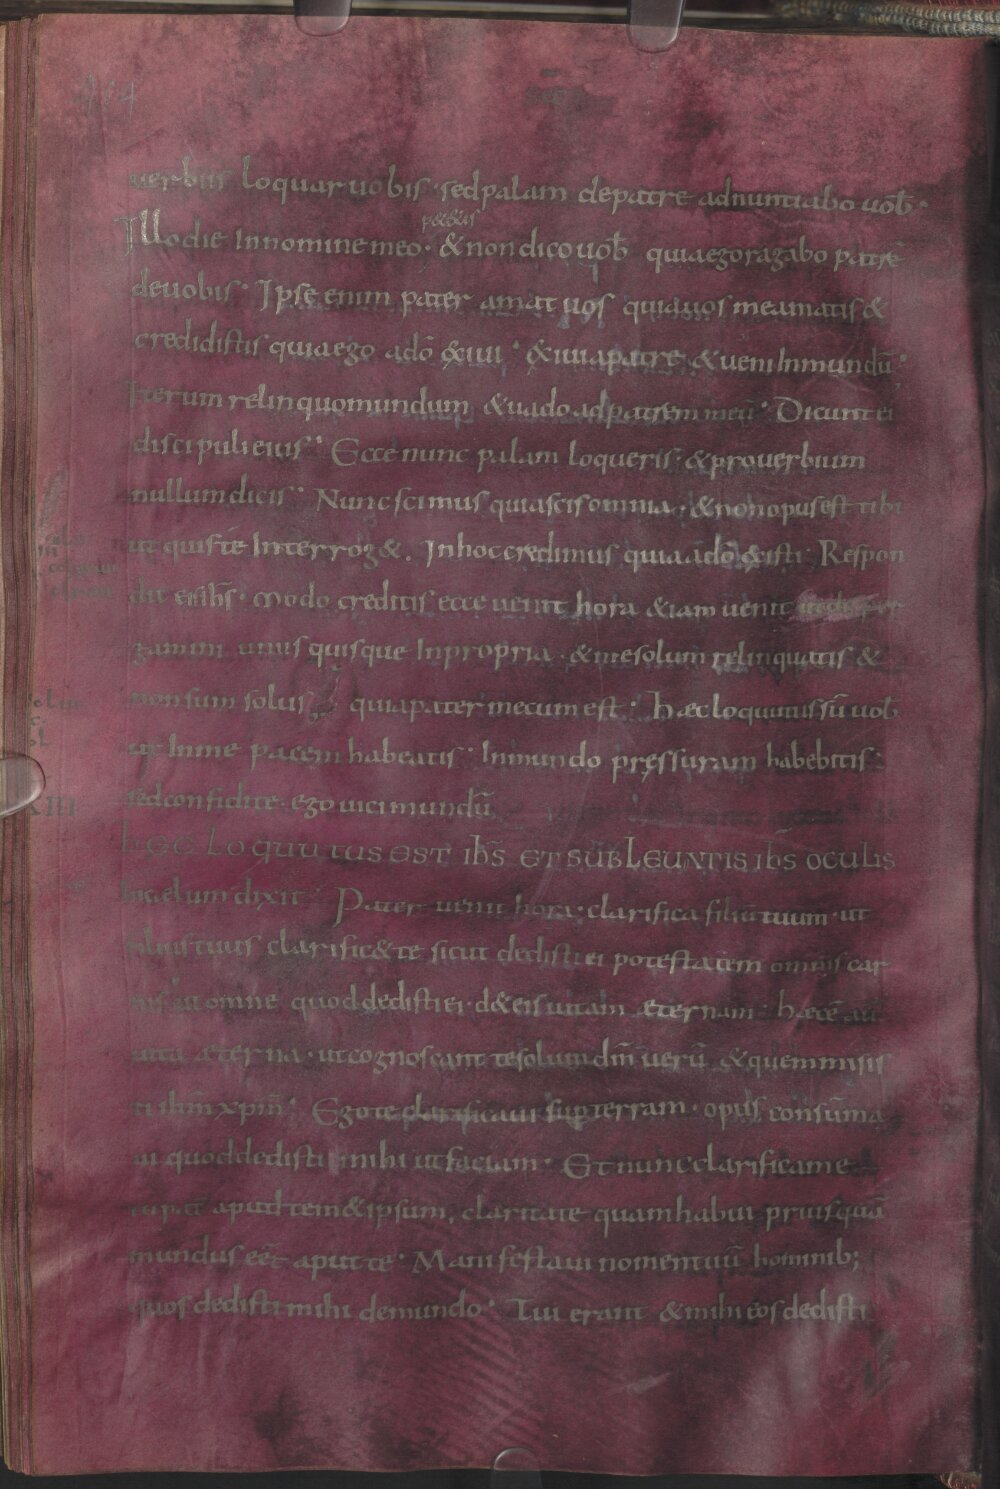 uerbiis loquar uobis · sed palam de patre adnuntiabo uob̄ ·
Illo die In nomine meo · petetis & non dico uob̄ quia ego ragabo patrē
de uobis · Ipse enim pater amat uos quia uos me amatis &
credidistis quia ego a dō exiui · Exiui a patre & ueni In mundū ·
Iterum relinquo mundum & uado ad patrem meū · Dicunt ei
discipuli eius · Ecce nunc palam loqueris · & prouerbium
nullum dicis · Nunc scimus quia scis omnia · & non opus est tibi
ut quis te Interrog& . In hoc credimus quia a dō existi · Respon
dit eis ih̄s · Modo creditis ecce uenit hora & iam uenit ut disper
gamini unus quisque In propria · & me solum relinquatis &
non sum solus quia pater mecum est · haec loquutus sū uob̄
ut In me pacem habeatis · In mundo pressuram habebitis ·
sed confidite · ego uici mundū
XIII
HEC LOQUUTUS EST IH̄S ET SUBLEUATIS IH̄S OCULIS
In caelum dixit · Pater uenit hora · clarifica filiū tuum · ut
filius tuus clarific& te sicut dedisti ei potestatem omnis car
nis ut omne quod dedisti ei · d& eis uitam aeternam · haec ē aū
uita aeterna · ut cognoscant te solum dm̄ uerū & quem misis
ti ihm̄ xpm̄ · Ego te clarificaui sup terram · opus consūma
ui quod dedisti mihi ut faciam · Et nunc clarifica me
tu pat̄ aput tem & ipsum , claritate quam habui priusquā
mundus eēt aput te · Manifestaui nomen tuū hominib;
quos dedisti mihi de mundo · Tui erant & mihi eos dedisti